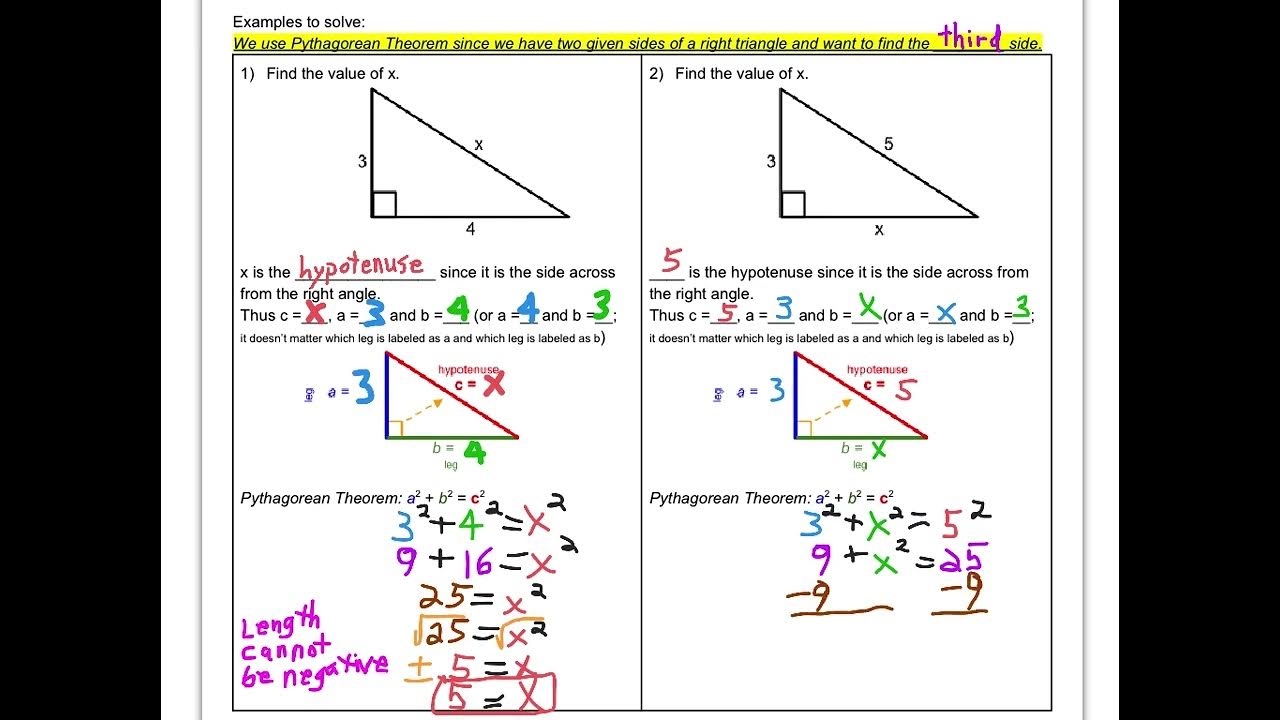 Examples to solve:
We use Pythagorean Theorem since we have two given sides of a right triangle and want to find the third side.
1) Find the value of x.
3
x
4
x is the hypotenuse since it is the side across
from the right angle.
Thus c = x, a = 3 and b = 4 (or a = 4 and b = 3;
it doesn't matter which leg is labeled as a and which leg is labeled as b)
hypotenuse
c = x
leg a = 3
b = 4
leg
Pythagorean Theorem: a² + b² = c²
3² + 4² = x²
9 + 16 = x²
25 = x²
√25 = √x²
± 5 = x
5 = x
Length
cannot
be negative
2) Find the value of x.
3
5
x
5 is the hypotenuse since it is the side across from
the right angle.
Thus c = 5, a = 3 and b = x (or a = x and b = 3;
it doesn't matter which leg is labeled as a and which leg is labeled as b)
hypotenuse
c = 5
leg a = 3
b = x
leg
Pythagorean Theorem: a² + b² = c²
3² + x² = 5²
9 + x² = 25
-9 -9